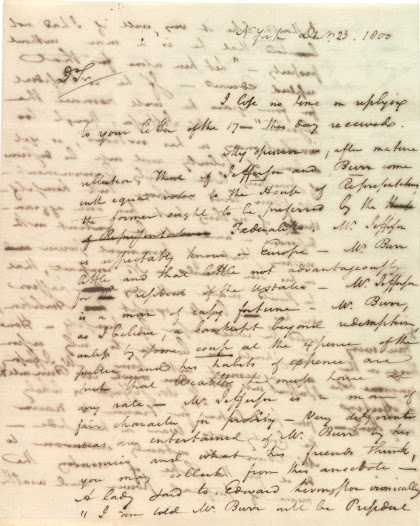 N York Decr 23. 1800
Dr Sir
I lose no time in replying
to your Letter of the 17 this day received.
My opinion is, after mature
reflection, that if Jefferson and Burr come
with equal votes to the House of Representatives
the former ought to be preferred by the House
of Representatives Federalists Mr. Jefferson
is respectably known in Europe – Mr. Burr
little and that little not advantageous
for President of the UStates – Mr. Jefferson
is a man of easy fortune – Mr. Burr,
as I believe, a bankrupt beyond redemption
unless by some coup at the expence of the
public and his habits of expence are
such that Wealth he must have at
any rate – Mr. Jefferson is a man of
fair character for probity – Very different
ideas are entertained of Mr. Burr by his
enemies and what his friends think,
you may collect from this anecdote –
A lady said to Edward Livingston ironically
" I am told Mr. Burr will be President